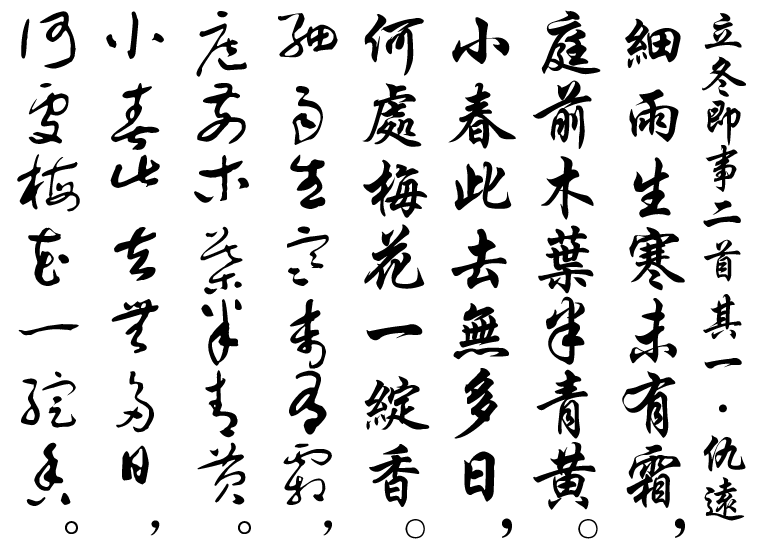 立冬即事二首其一·仇遠
細雨生寒未有霜，
庭前木葉半青黃。
小春此去無多日，
何處梅花一綻香。
細雨生寒未有霜，
庭前木葉半青黃。
小春此去無多日，
何處梅花一綻香。